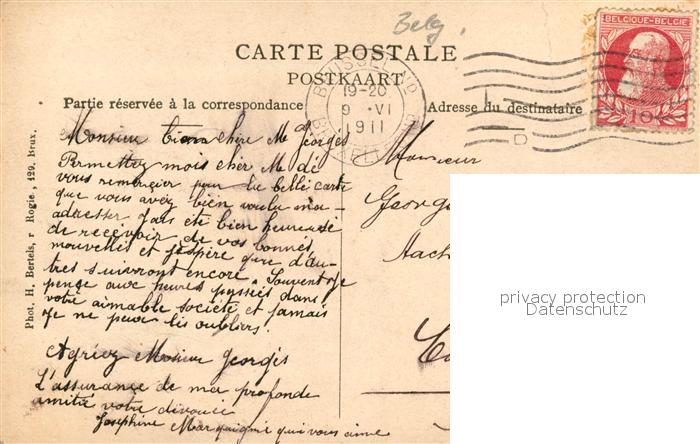 Belg.
CARTE POSTALE
POSTKAART
Partie réservée à la correspondance
Adresse du destinataire
BELGIQUE-BELGIE
10
19-20
9 VI
1911
Phot. H. Bertels, r Rogie, 129, Brux.
Monsieur bien chère Mr Georges
Permettez mois cher Mr de
vous remercier pour la belle carte
que vous avez bien voulu m'a-
adresser J'ais été bien heureuse
de recevoir de vos bonnes
nouvelles et j'espère que d'au-
tres suivront encore. Souvent je
pense aux heures passées dans
votre aimable société et jamais
je ne peux les oublier!
Agriez Monsieur Georges
L'assurance de ma profonde
amitié votre dévouée
Joséphine qui vous aime
Monsieur
George
Aach
privacy protection
Datenschutz